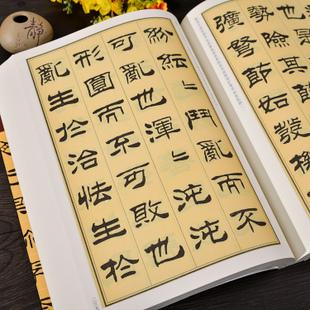 也
勢險其
彍弩節如發機
紛紜〻鬥亂而不
可亂也渾〻沌沌
形圓而不可敗也
亂生於治怯生於